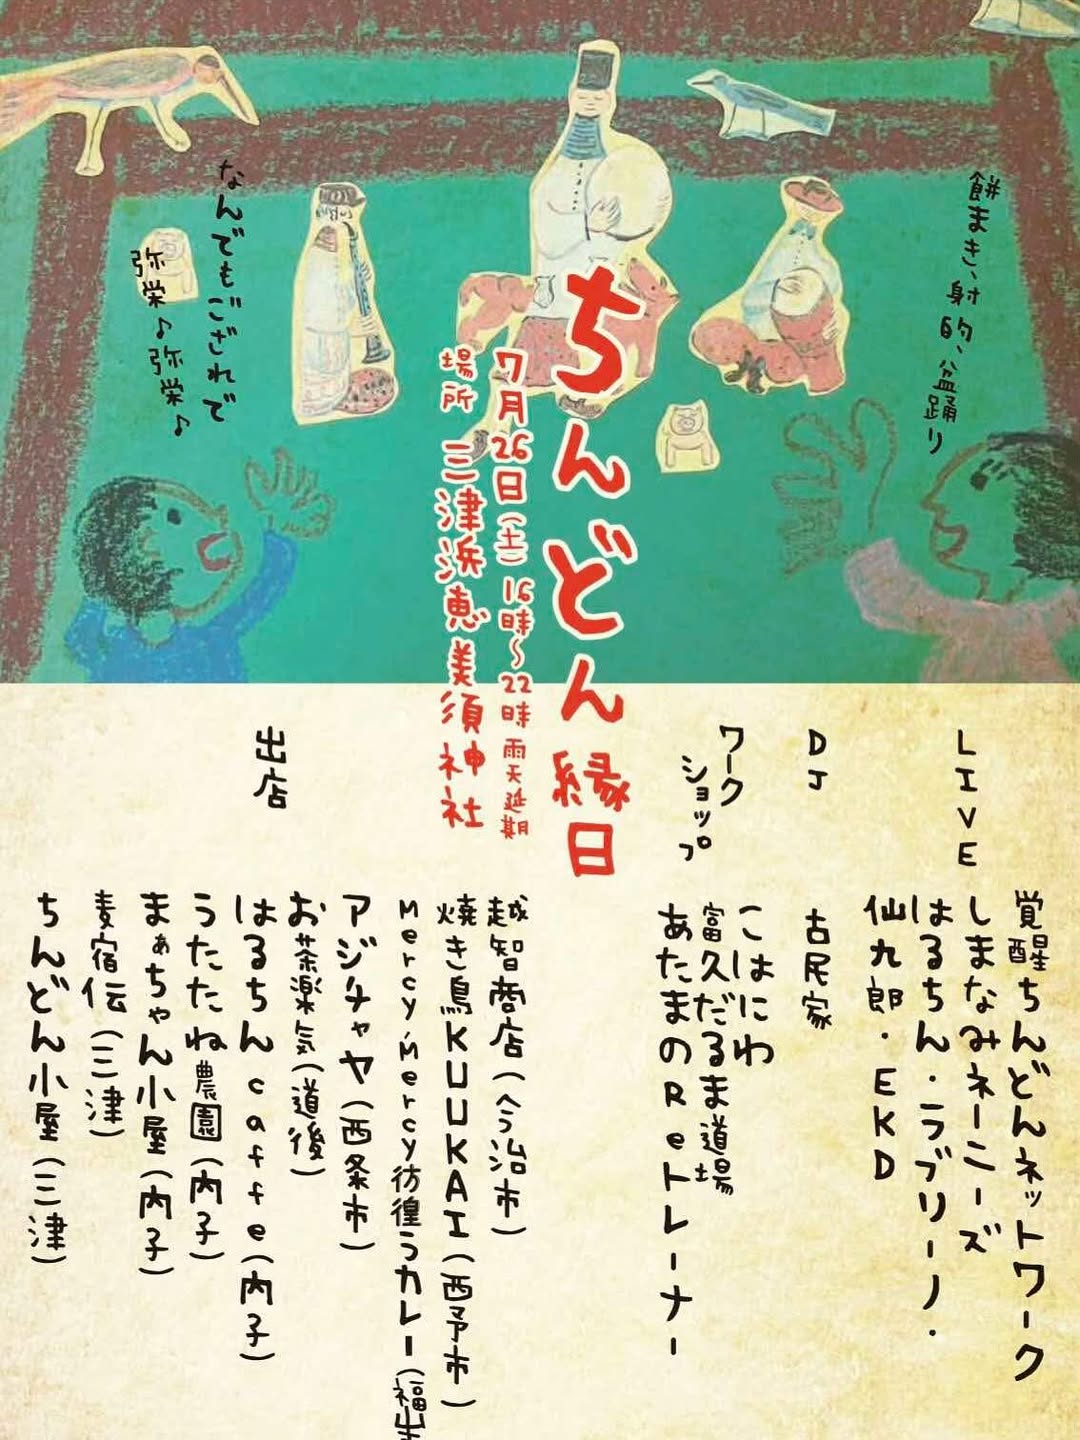 餅まき、射的、盆踊り
なんでもござれで
弥栄♪弥栄♪
ちんどん縁日
7月26日(土)16時〜22時 雨天延期
場所 三津浜恵美須神社
LIVE
覚醒ちんどんネットワーク
しまなみネーニーズ
はるちん・ラブリーノ・
仙九郎・EKD
DJ
古民家
ワーク
ショップ
こはにわ
富久だるま道場
あたまのReトレーナー
出店
越智商店(今治市)
焼き鳥KUKAI(西予市)
Mercy,Mercy彷徨うカレー(福山
アジチャヤ(西条市)
お茶楽気(道後)
はるちんcaffe(内子)
うたたね農園(内子)
まぁちゃん小屋(内子)
麦宿伝(三津)
ちんどん小屋(三津)